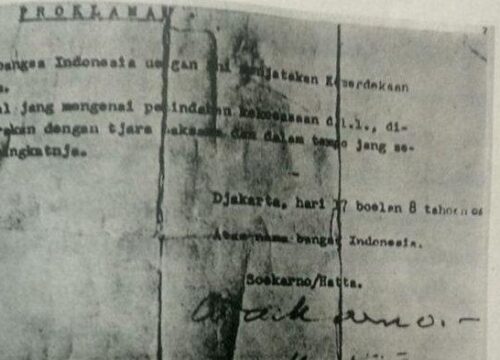 PROKLAMA
bangsa Indonesia dengan ini menjatakan Kemerdekaan
a.
al jang mengenai pemindahan kekoeasaan d.l.l., di-
rakan dengan tjara saksama dan dalam tempo jang se-
ingkatnja.
Djakarta, hari 17 boelan 8 tahoen 05
Atas nama bangsa Indonesia.
Soekarno/Hatta.